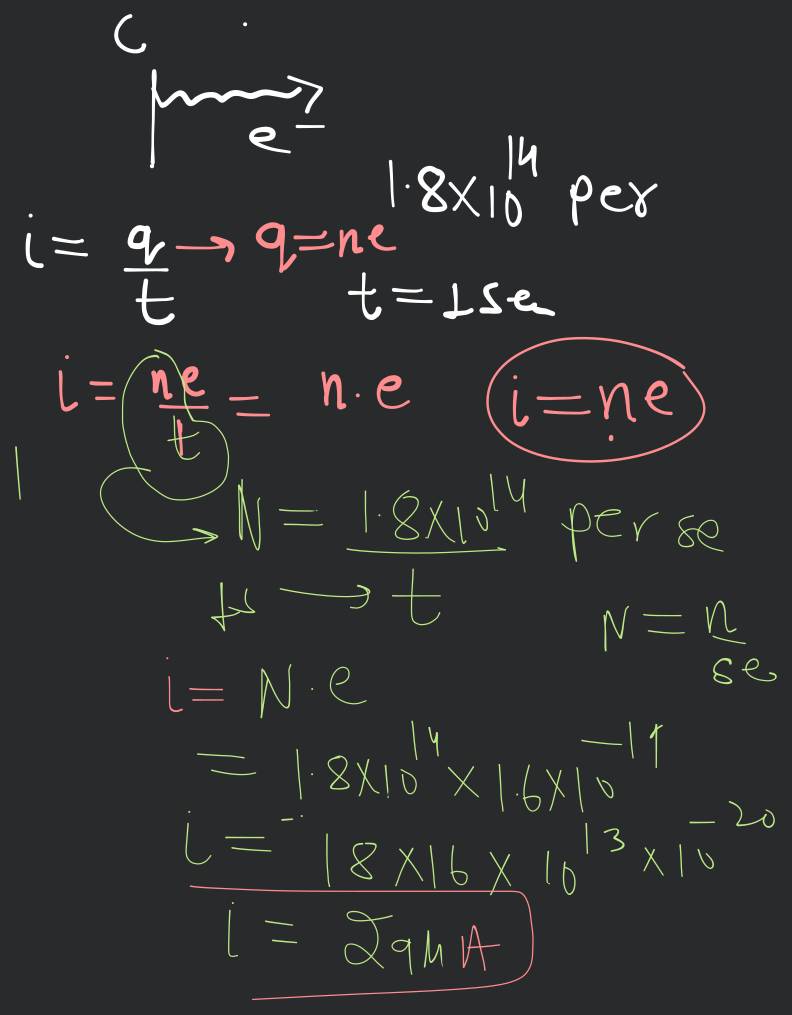 C
e⁻
1.8×10¹⁴ per
i = q/t → q=ne
t = 1 se
i = ne/t = n.e
i = ne
N = 1.8×10¹⁴ per se
→ t
N = n/se
i = N.e
= 1.8×10¹⁴ × 1.6×10⁻¹⁹
i = 18×16×10¹³×10⁻²⁰
i = 29μA